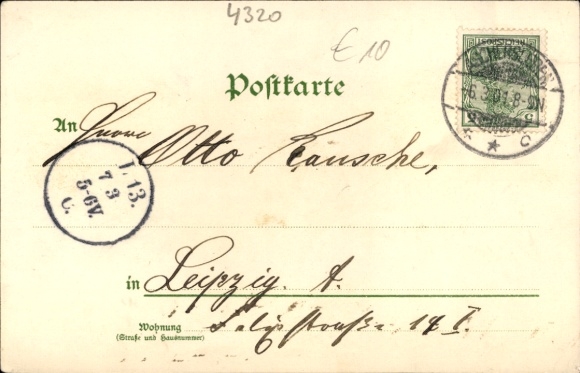 4320
€10
Postkarte
An
Herrn
Otto Rausche,
6.3.01.8-9N
C
L.13.
7 3
5-6V.
C.
in Leipzig. A.
Wohnung
(Straße und Hausnummer)
Felixstraße 14 I.